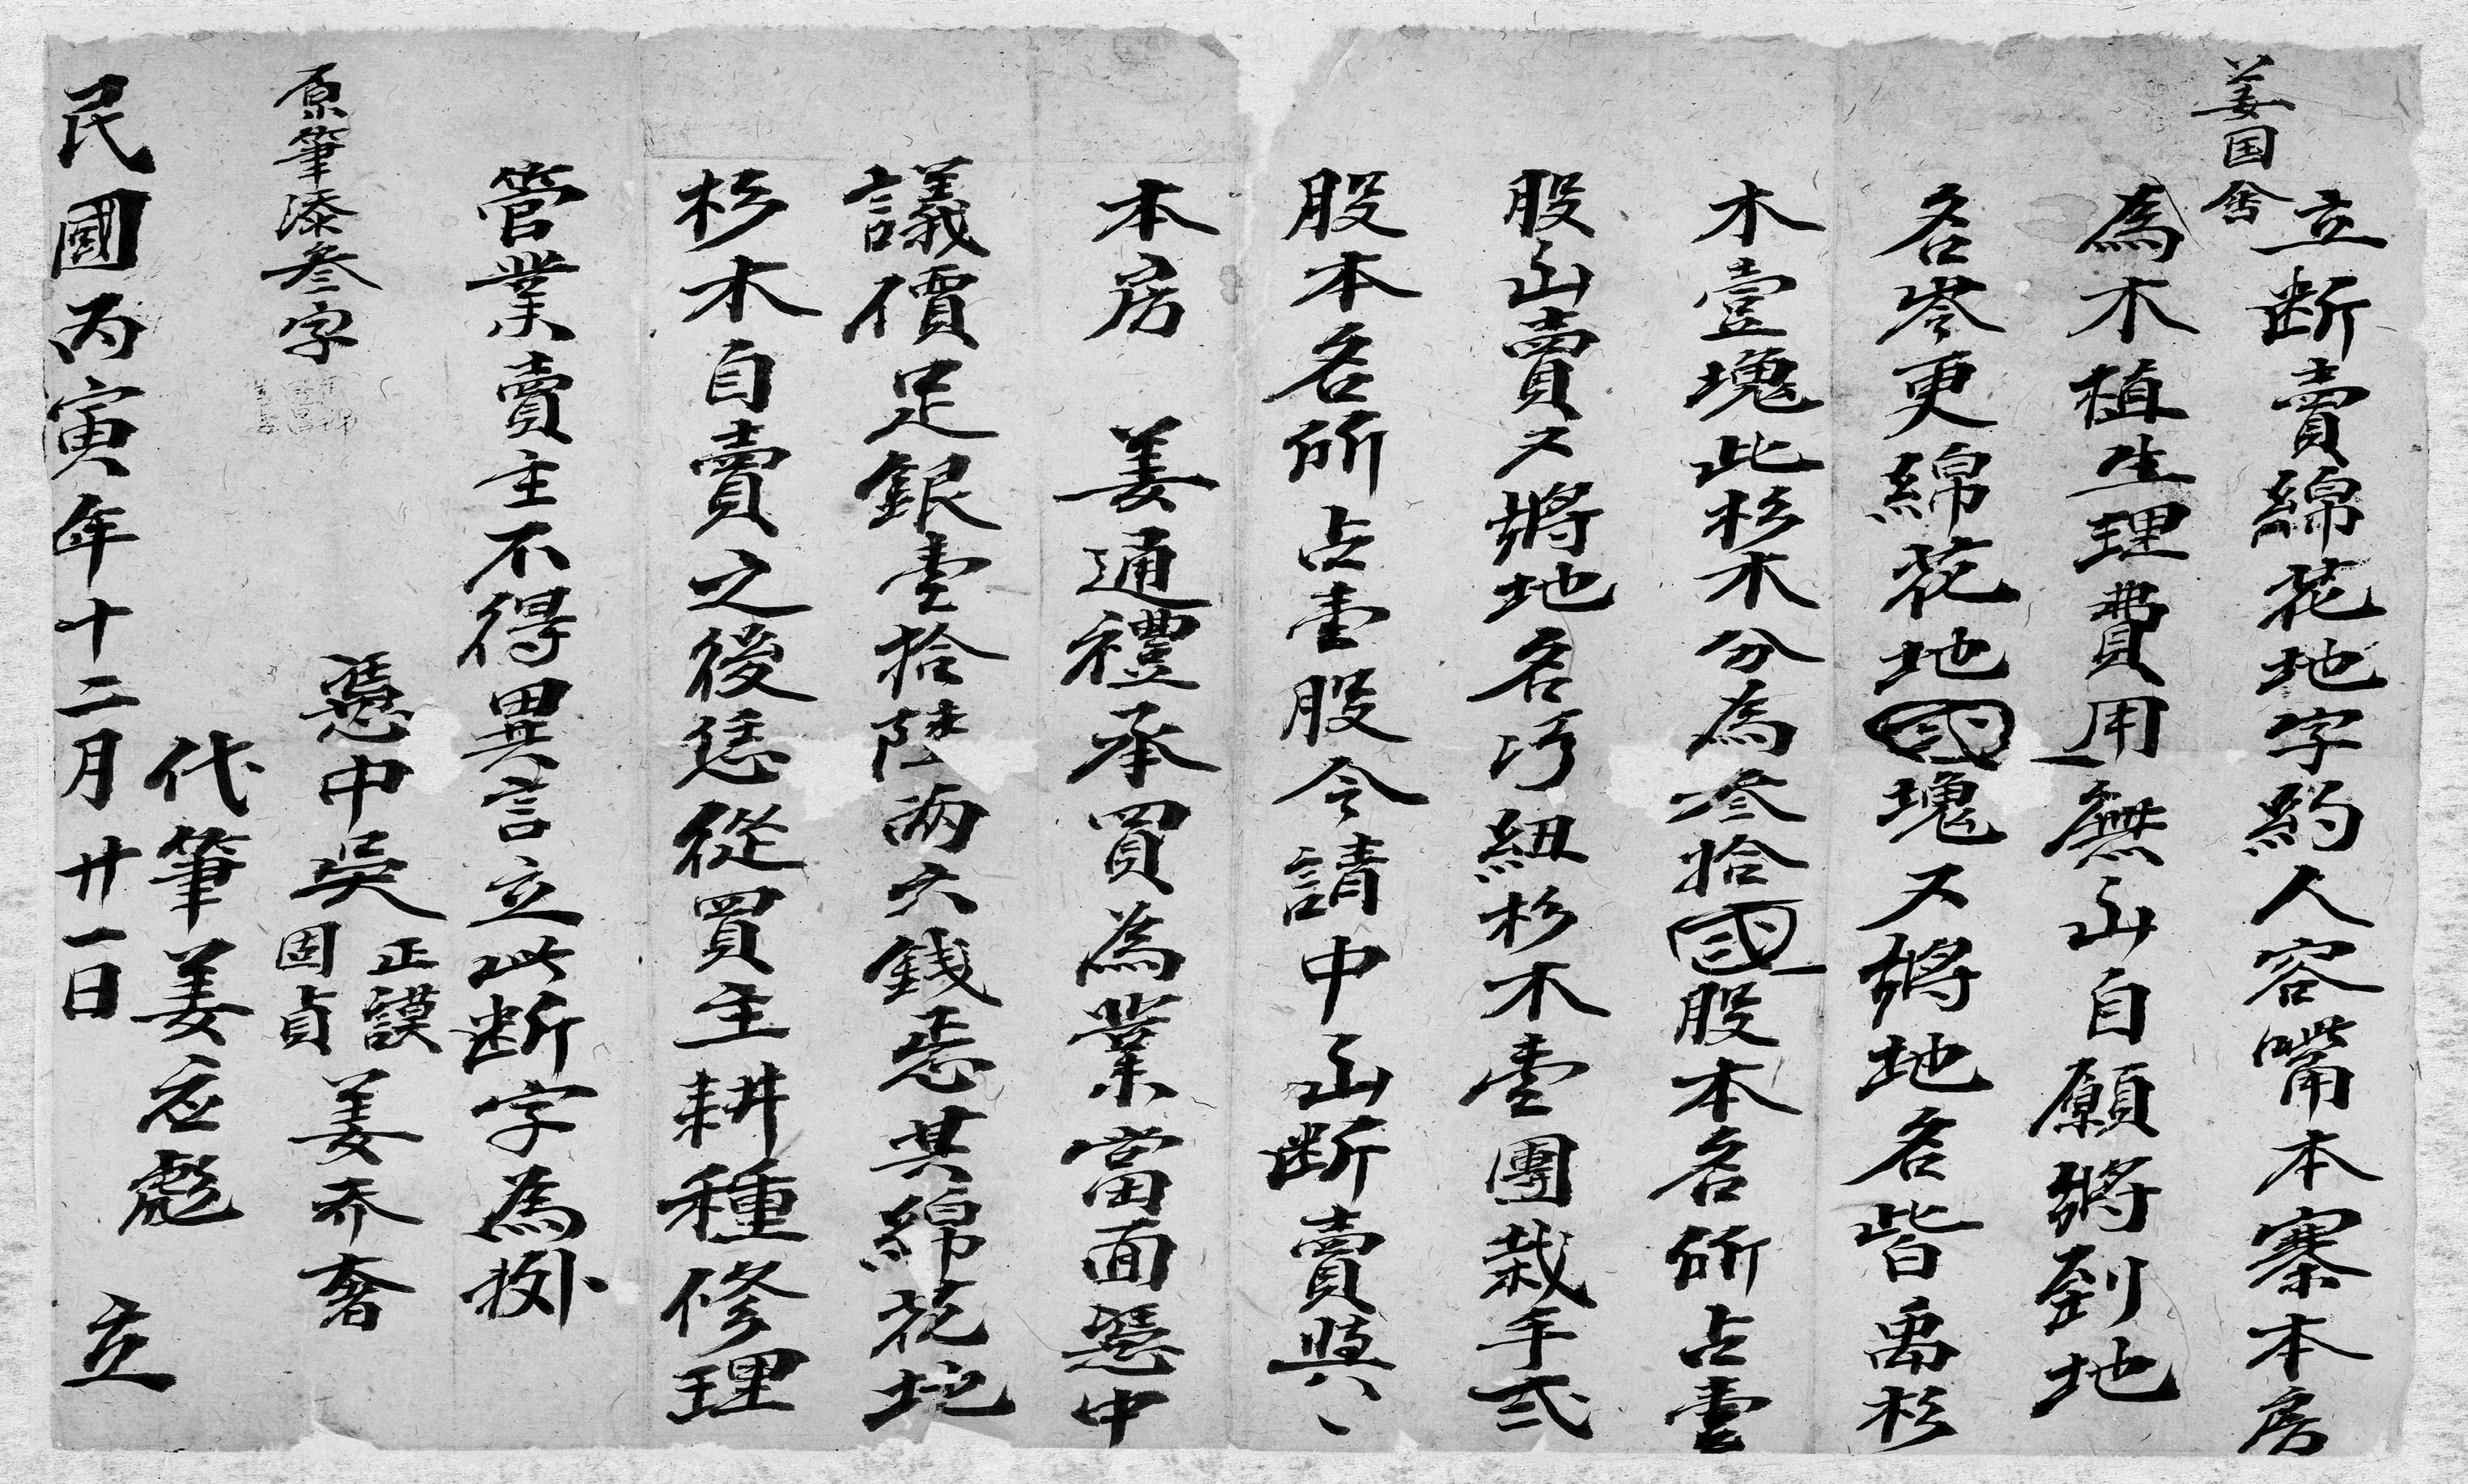 立断賣綿花地字約人容嘴本寨本房
姜国舍
為木植生理費用無山自願將到地
名岑更綿花地弍塊又將地名皆禹杉
木壹塊此杉木分為叁拾弍股本名所占壹
股山賣又將地名污紐杉木壹團栽手弍
股本名所占壹股今請中山断賣與
本房 姜通禮承買為業當面憑中
議價足銀壹拾陸兩六錢恁其綿花地
杉木自賣之後恁從買主耕種修理
管業賣主不得異言立此断字為挒
憑中吳 正謨 固貞 姜乔奢
原筆添叁字
代筆姜应彪
民國丙寅年十二月廿一日 立